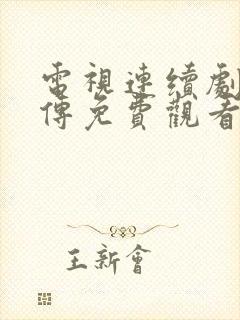 電視連續劇
傳免費觀看
王新會